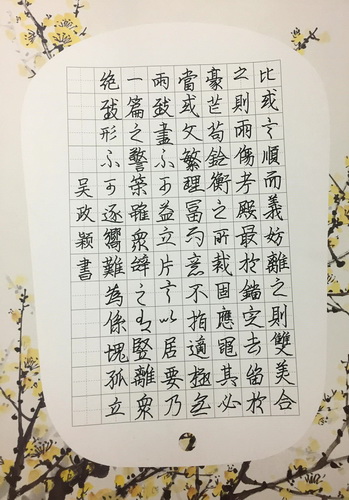 比或言順而義妨離之則雙美合
之則兩傷考殿最於錙定去留於
豪芒苟銓衡之所裁固應繩其必
當或文繁理冨而意不指適極無
兩致盡不可益立片言以居要乃
一篇之警策雖眾辝之有豎離眾
絶致形不可逐響難為係塊孤立
吴政穎書